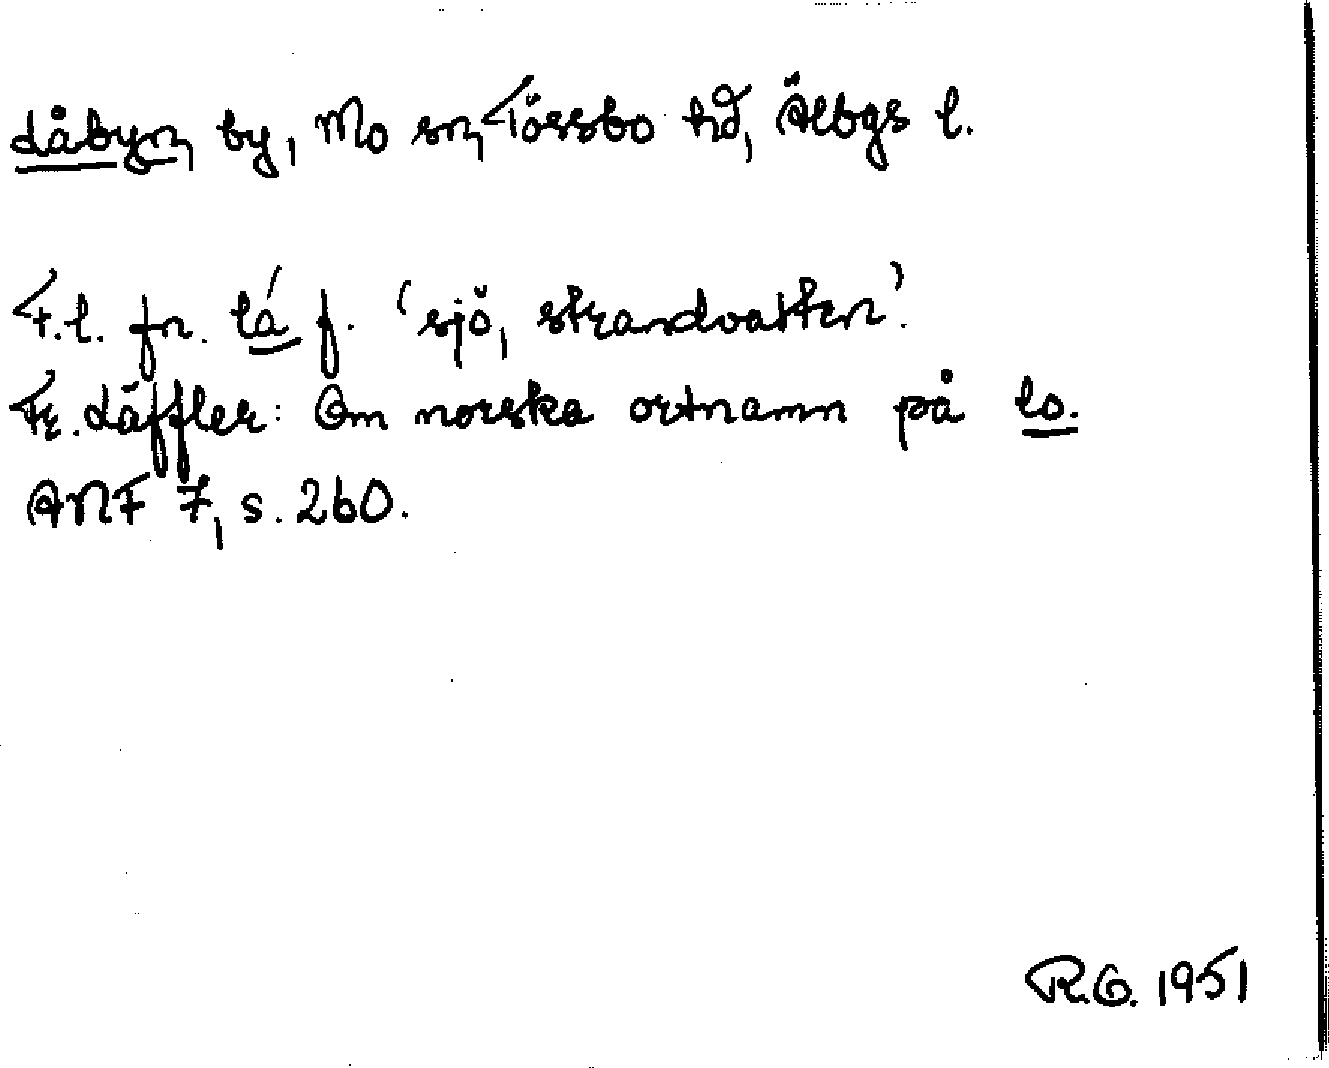 Låbyn, by, Mo sn, Tössbo hd, Älbgs l.
F.l. fn. lá f. 'sjö, strandvatten'.
Fr. Läffler: Om norska ortnamn på lo.
ANF 7, s. 260.
R.G. 1951